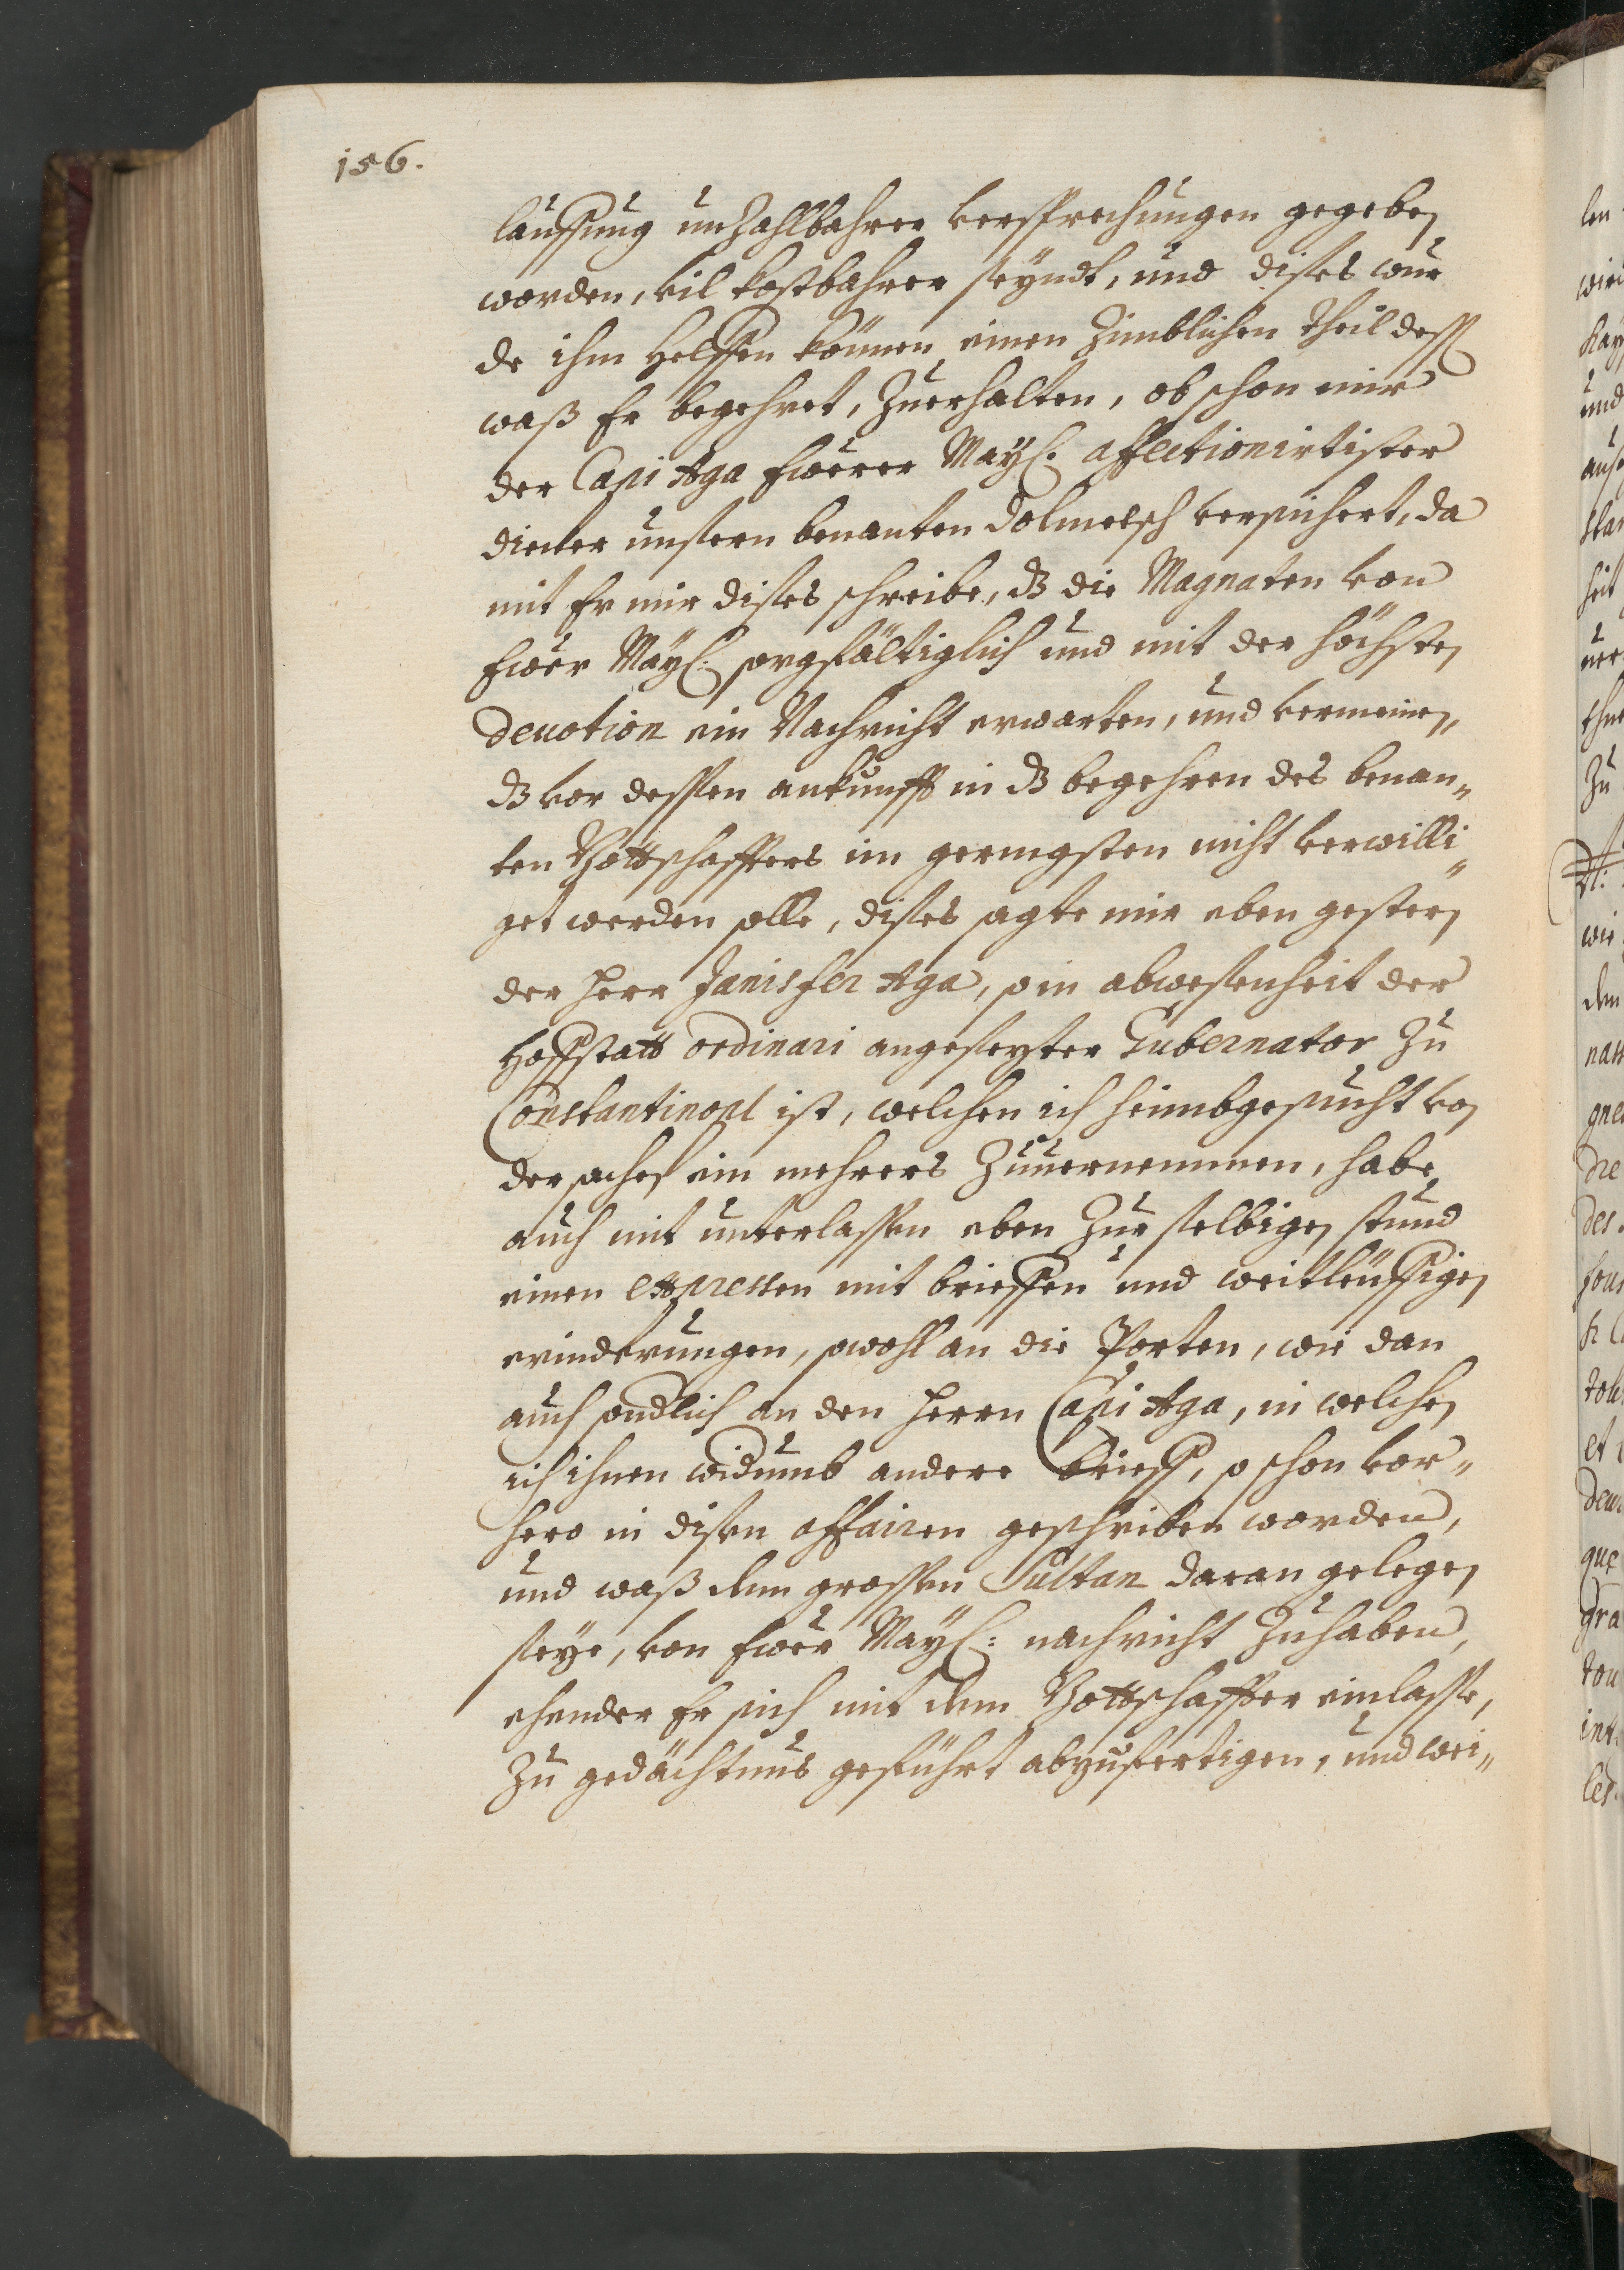 156.
lauffung unzahlbahrer versprechungen gegeben
worden, vil kostbahrer seyndt, und dises wur
de ihm helffen können einen zimblichen theil dess
waß Er begehret, zuerhalten, obschon mir
der Capi Aga Ewerer May: affectionirtister
diener unsern benanten Dolmetsch versichert, da
mit Er mir dises schreibe, dz die Magnaten von
Ewer May: sorgfältiglich und mit der höchsten
Devotion ein Nachricht erwarten, und vermeinen,
dz vor dessen ankunfft in dz begehren des benan„
ten Bottschaffters im geringsten nicht verwilli„
get werden solle, dises sagte mir eben gestern
der Herr Janisfer Aga, so in abwesenheit der
Hoffstatt ordinari angesezter Gubernator zu
Constantinopl ist, welchen ich heimbgesucht von
der sachen ein mehrers zuuernemmen, habe
auch nit unterlassen eben zur selbigen stund
einen expressen mit brieffen und weitleuffigen
erinderungen, sowohl an die Porten, wie dan
auch sondlich an den Herrn Capi Aga, in welchen
ich ihnen widumb andere brieff, so schon vor„
hero in disen affairen geschriben worden,
und waß dem grossen Sultan daran gelegen
seye, von Ewer May: nachricht zuhaben,
ehender Er sich mit dem Bottschaffter einlasse,
zu gedächtnus geführt abzufertigen, und wei„